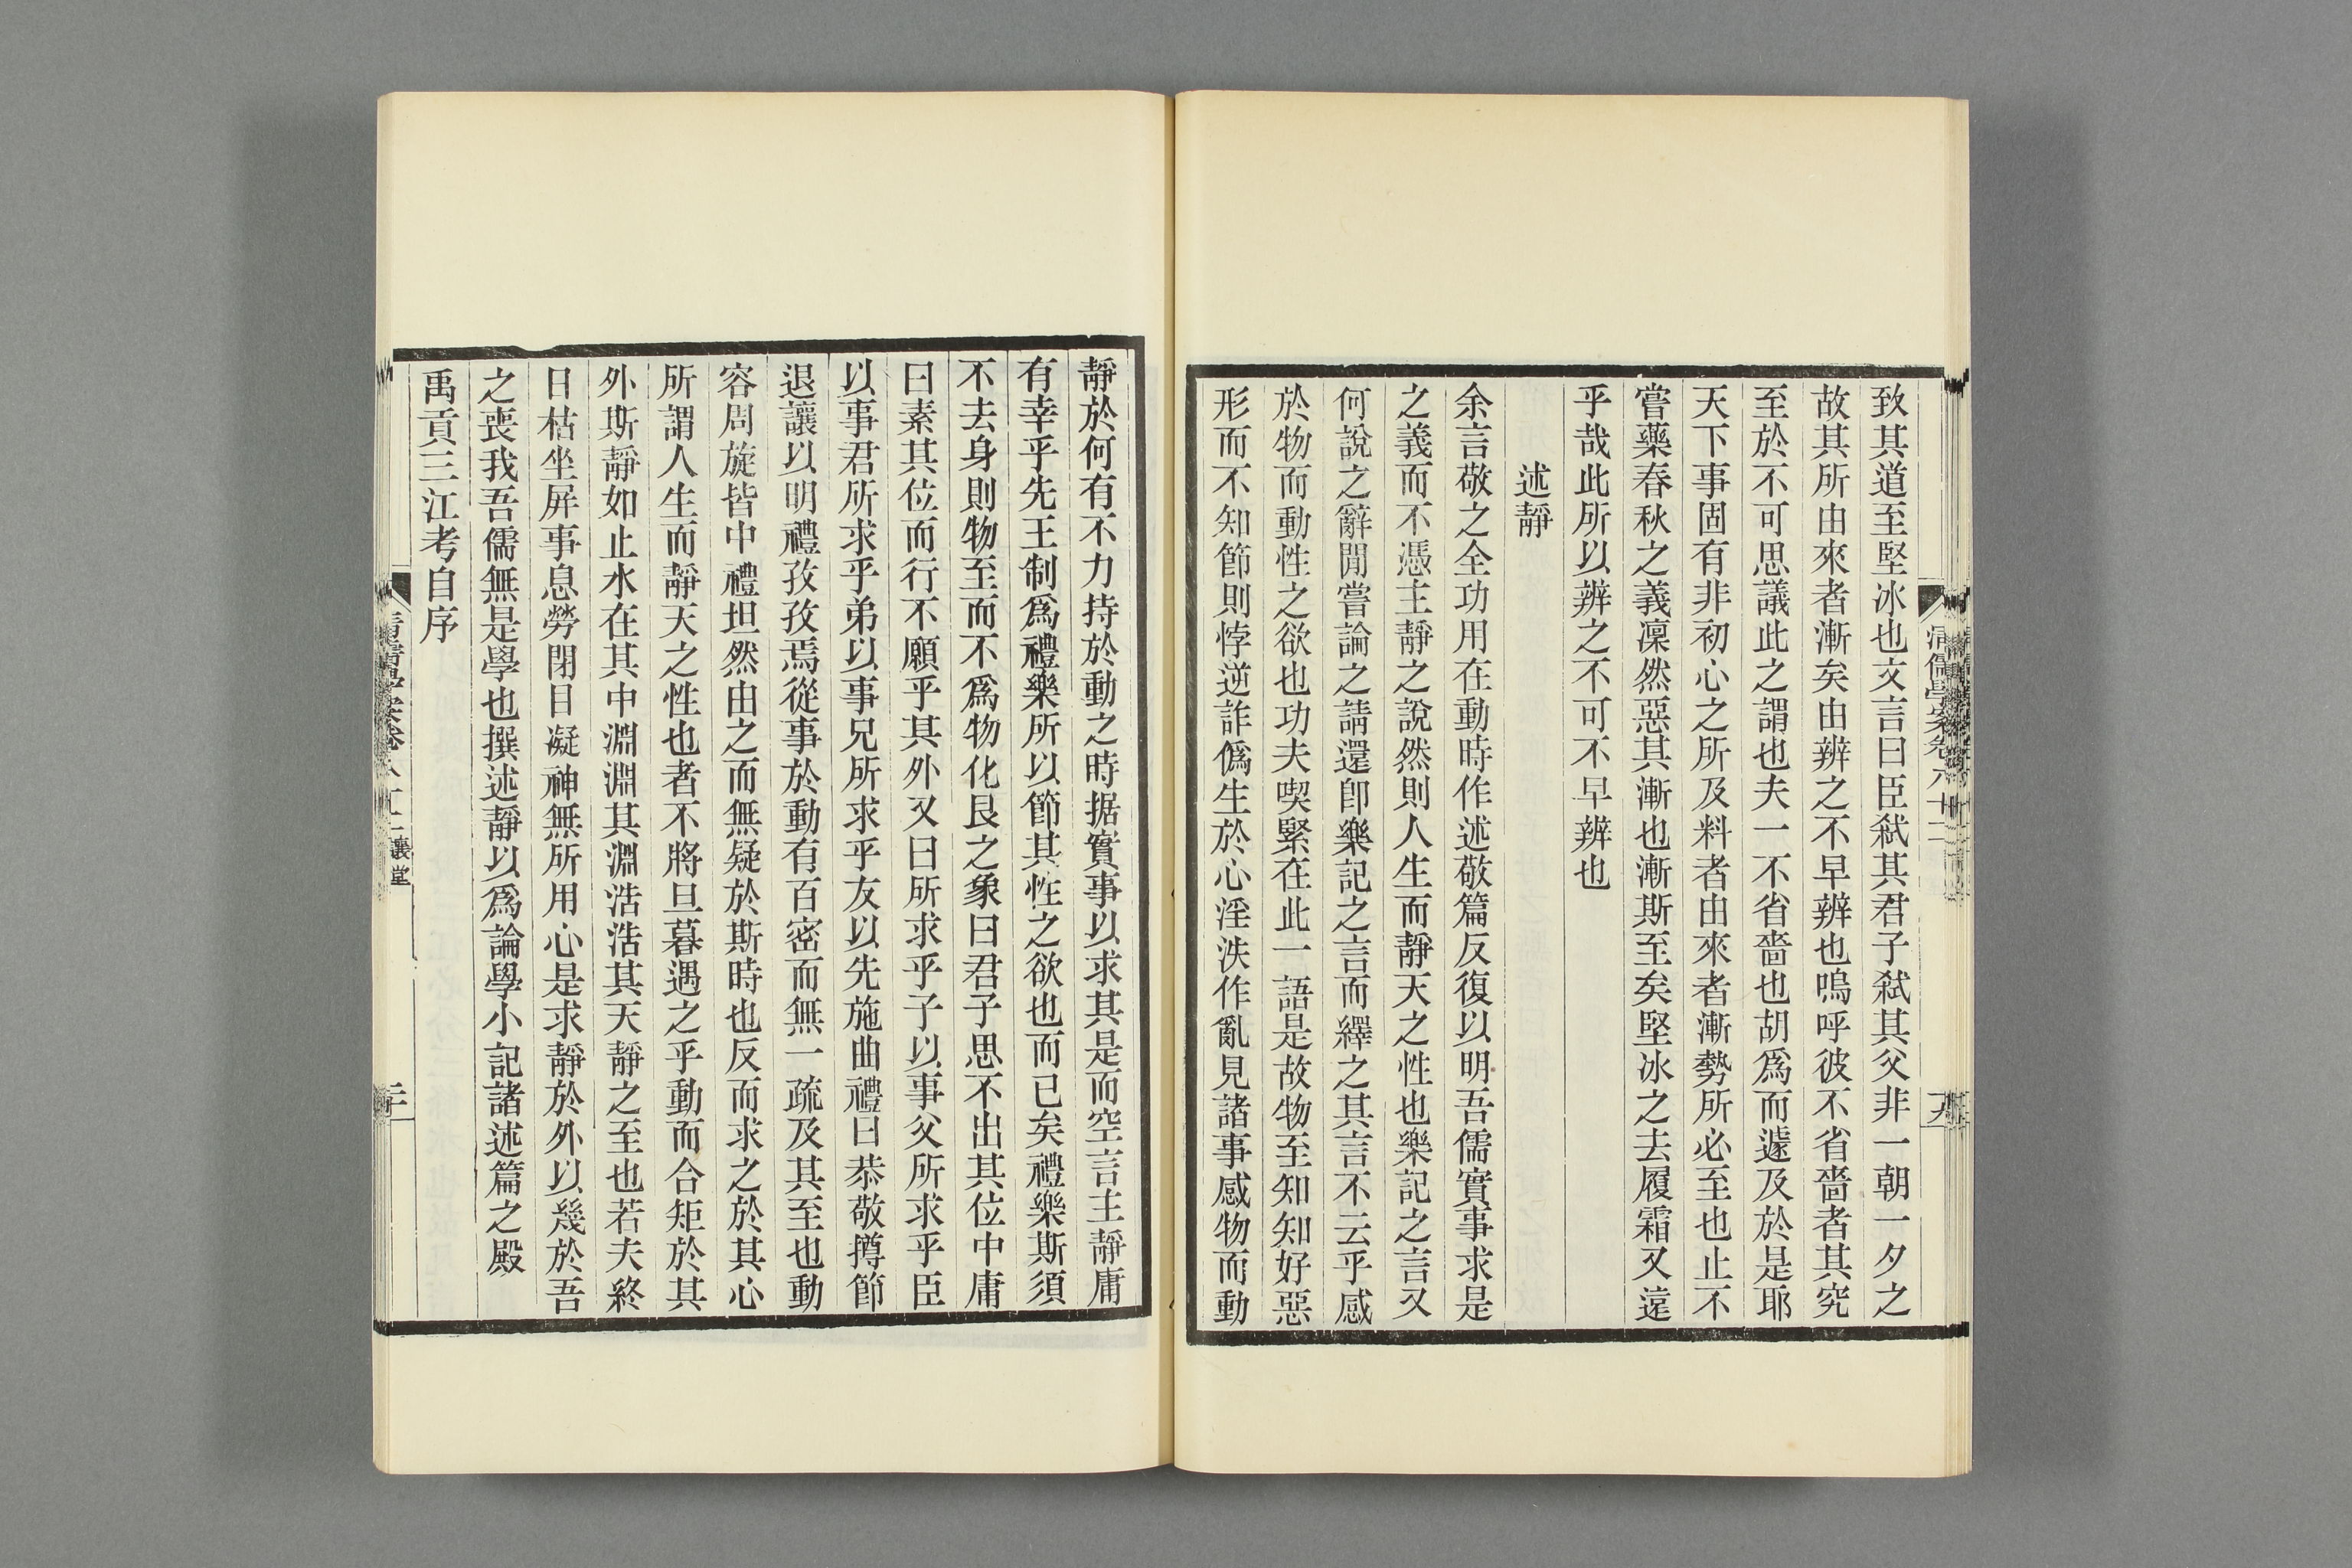 致其道至堅冰也文言曰臣弒其君子弒其父非一朝一夕之
故其所由來者漸矣由辨之不早辨也嗚呼彼不省嗇者其究
至於不可思議此之謂也夫一不省嗇也胡爲而遽及於是耶
天下事固有非初心之所及料者由來者漸勢所必至也止不
嘗藥春秋之義凜然惡其漸也漸斯至矣堅冰之去履霜又遠
乎哉此所以辨之不可不早辨也
述靜
余言敬之全功用在動時作述敬篇反復以明吾儒實事求是
之義而不憑主靜之說然則人生而靜天之性也樂記之言又
何說之辭閒嘗論之請還卽樂記之言而繹之其言不云乎感
於物而動性之欲也功夫喫緊在此一語是故物至知知好惡
形而不知節則悖逆詐僞生於心淫泆作亂見諸事感物而動
靜於何有不力持於動之時据實事以求其是而空言主靜庸
有幸乎先王制爲禮樂所以節其性之欲也而已矣禮樂斯須
不去身則物至而不爲物化艮之象曰君子思不出其位中庸
曰素其位而行不願乎其外又曰所求乎子以事父所求乎臣
以事君所求乎弟以事兄所求乎友以先施曲禮曰恭敬撙節
退讓以明禮孜孜焉從事於動有百密而無一疏及其至也動
容周旋皆中禮坦然由之而無疑於斯時也反而求之於其心
所謂人生而靜天之性也者不將旦暮遇之乎動而合矩於其
外斯靜如止水在其中淵淵其淵浩浩其天靜之至也若夫終
日枯坐屏事息勞閉目凝神無所用心是求靜於外以幾於吾
之喪我吾儒無是學也撰述靜以爲論學小記諸述篇之殿
禹貢三江考自序